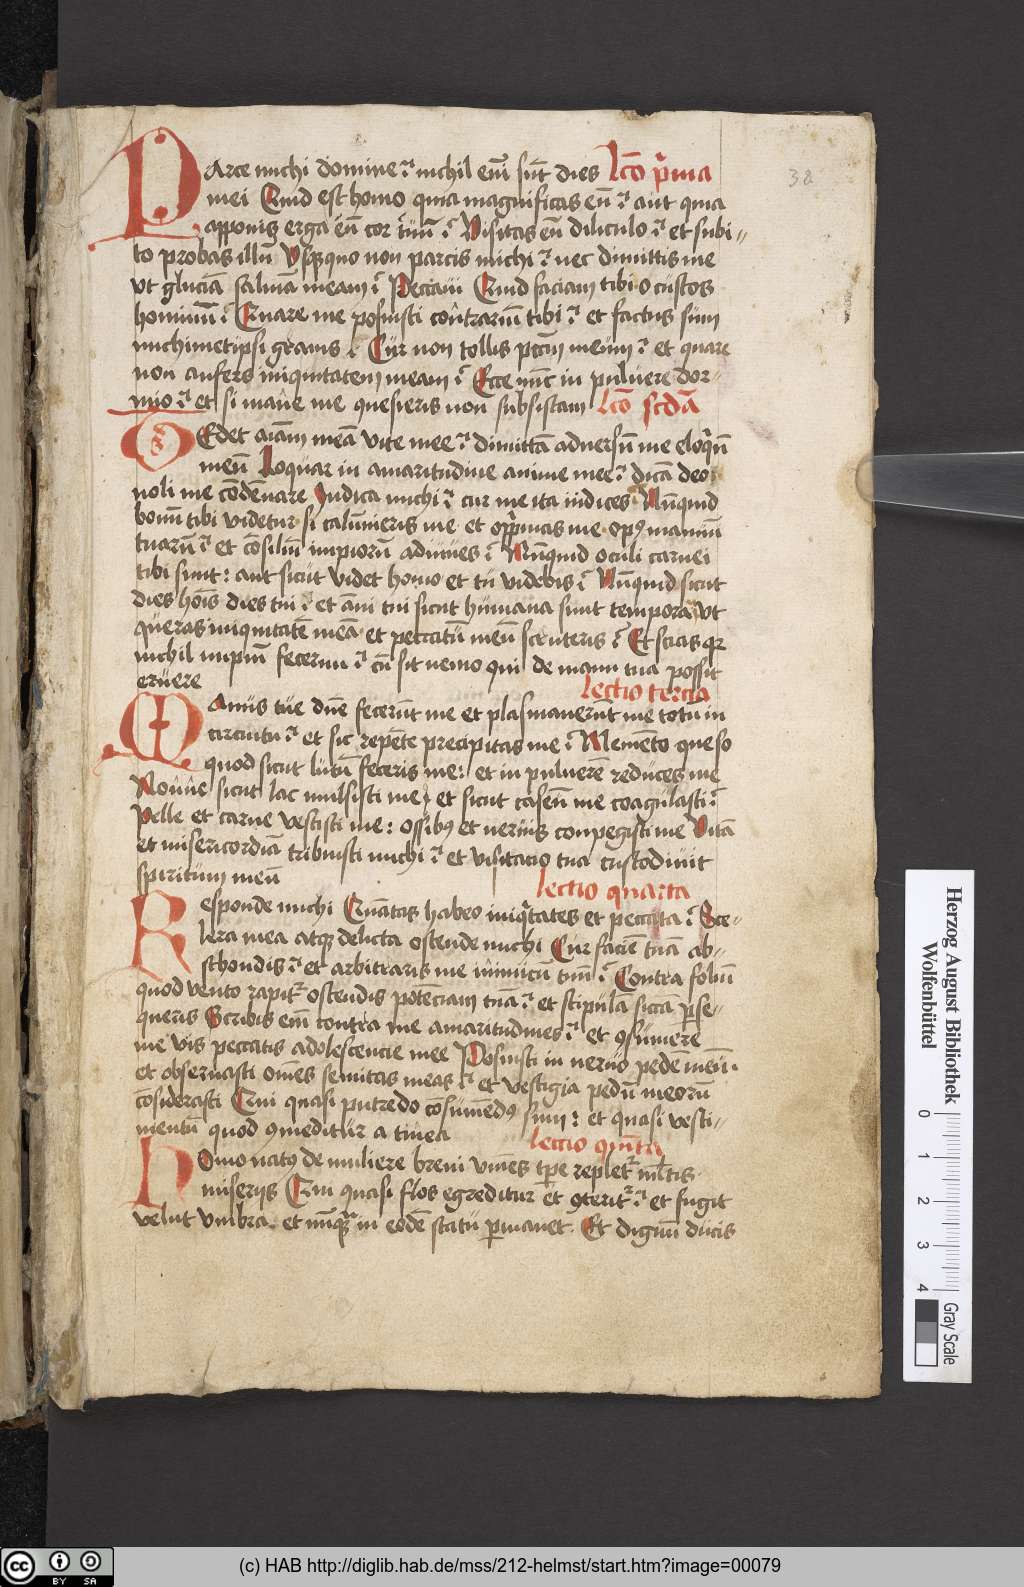 38
PArce michi domine ⁊ nichil em̄ sūt dies lc̄o p̄ma
mei Quid est homo quia magnificas eū ⁊ aut quia
apponis erga eū cor tuū ⁊ Visitas eū diliculo ⁊ et subi-
to probas illū Vsqȝquo non parcis michi ⁊ nec dimittis me
vt gluciā saliuā meam ⁊ Peccaui Quid faciam tibi o custos
hominū ⁊ Quare me posuisti contrariū tibi ⁊ et factus sum
michimetipsi grauis ⁊ Cur non tollis pctm̄ meum ⁊ et quare
non aufers iniquitatem meam ⁊ Ecce nūc in puluere dor-
mio ⁊ et si mane me quesieris non subsistam lc̄o scd̄a
TEdet aīam meā vite mee ⁊ dimittā aduersū me eloq̄ū
meū Loquar in amaritudine anime mee ⁊ dicā deo
noli me cōdēnare Indica michi ⁊ cur me ita iudices Nūquid
bonū tibi videtur si calūnieris me et opp̄mas me op⁹ manuū
tuarū ⁊ et cōsiliū impiorū adiuues ⁊ Nūquid oculi carnei
tibi sunt: aut sicut videt homo et tu videbis ⁊ Nūquid sicut
dies hoīs dies tui ⁊ et āni tui sicut humana sunt tempora vt
queras iniquitatē meā et peccatū meū scruteris ⁊ Et scias qꝛ
nichil impiū fecerim ⁊ cū sit nemo qui de manu tua possit
eruere lectio tercia
MAnus tue dn̄e fecerūt me et plasmauerūt me totū in
circuitu ⁊ et sic repēte precipitas me ⁊ Memēto queso
quod sicut lutū feceris me: et in puluerē reduces me
Nonne sicut lac mulsisti me, et sicut caseū me coagulasti ⁊
Pelle et carne vestisti me: ossibȝ et neruis compegisti me Vitā
et misericordiā tribuisti michi ⁊ et visitacio tua custodiuit
spiritum meū
lectio quarta
Responde michi Quātas habeo iniq̄tates et peccata ⁊ Sce-
lera mea atqȝ delicta ostende michi Cur faciē tuā ab-
schondis ⁊ et arbitraris me inimicū tuū ⁊ Contra foliū
quod vento rapit᷑ ostendis potēciam tuā ⁊ et stipulā siccā p̄se-
queris Scribis em̄ contra me amaritudines ⁊ et ꝯsumere
me vis peccatis adolescencie mee Posuisti in neruo pedē meū
et obseruasti om̄es semitas meas ⁊ et vestigia pedū meorū
cōsiderasti Qui quasi putredo cōsumēd⁹ sum: et quasi vesti-
mentū quod ꝯmeditur a tinea lectio quīta
HOmo nat⁹ de muliere breui viuēs tp̄e replet᷑ ml̄tis
miserijs Qui quasi flos egreditur et ꝯterit᷑ ⁊ et fugit
velut vmbra et nūqȝ in eodē statu p̄manet Et dignū ducis
Herzog August Bibliothek
Wolfenbüttel
0 1 2 3 4
Gray Scale
(c) HAB http://diglib.hab.de/mss/212-helmst/start.htm?image=00079
cc BY SA